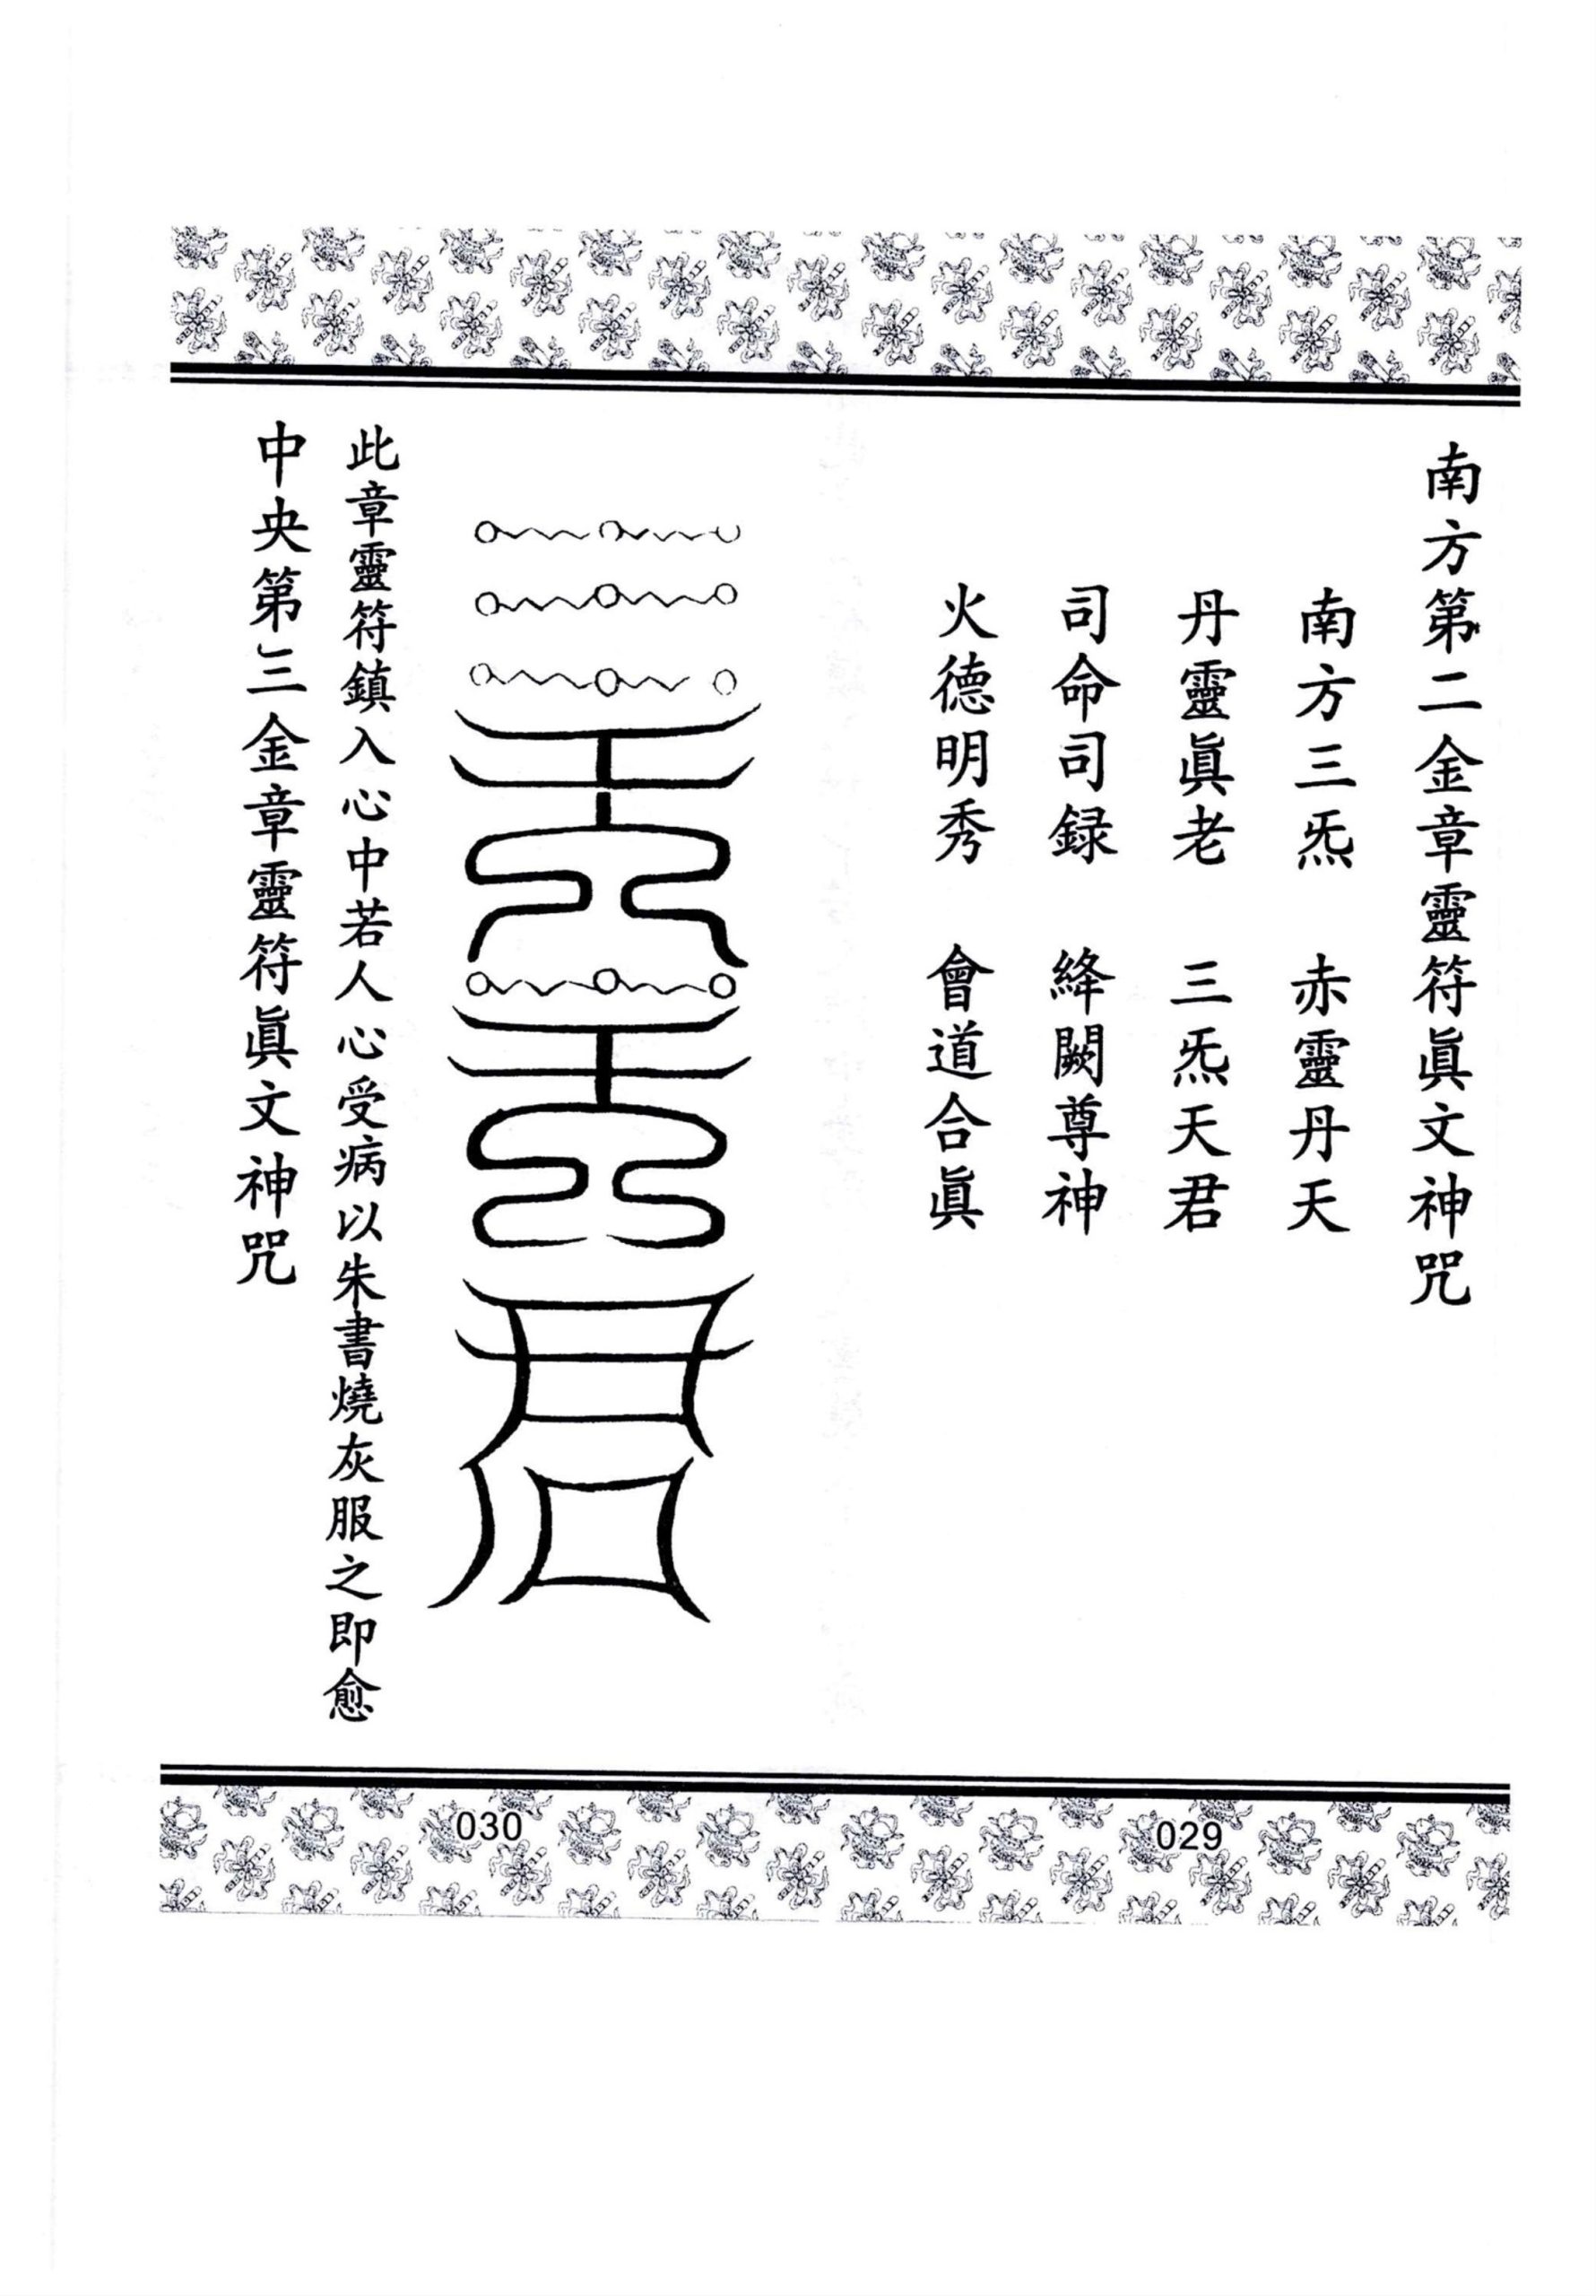 南方第二金章靈符眞文神咒
南方三炁　赤靈丹天
丹靈眞老　三炁天君
司命司録　絳闕尊神
火德明秀　會道合眞
029
此章靈符鎮入心中若人心受病以朱書燒灰服之即愈
中央第三金章靈符眞文神咒
030